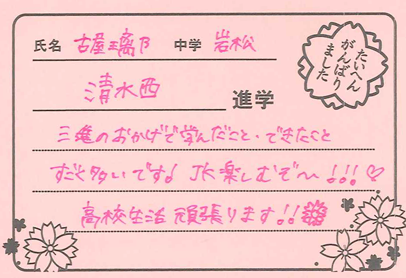 氏名 古屋璃乃 中学 岩松
清水西 進学
たいへん
がんばり
ました
三進のおかげで学んだこと・できたこと
すごく多いです! JK楽しむぞ〜!!!♡
高校生活頑張ります!!